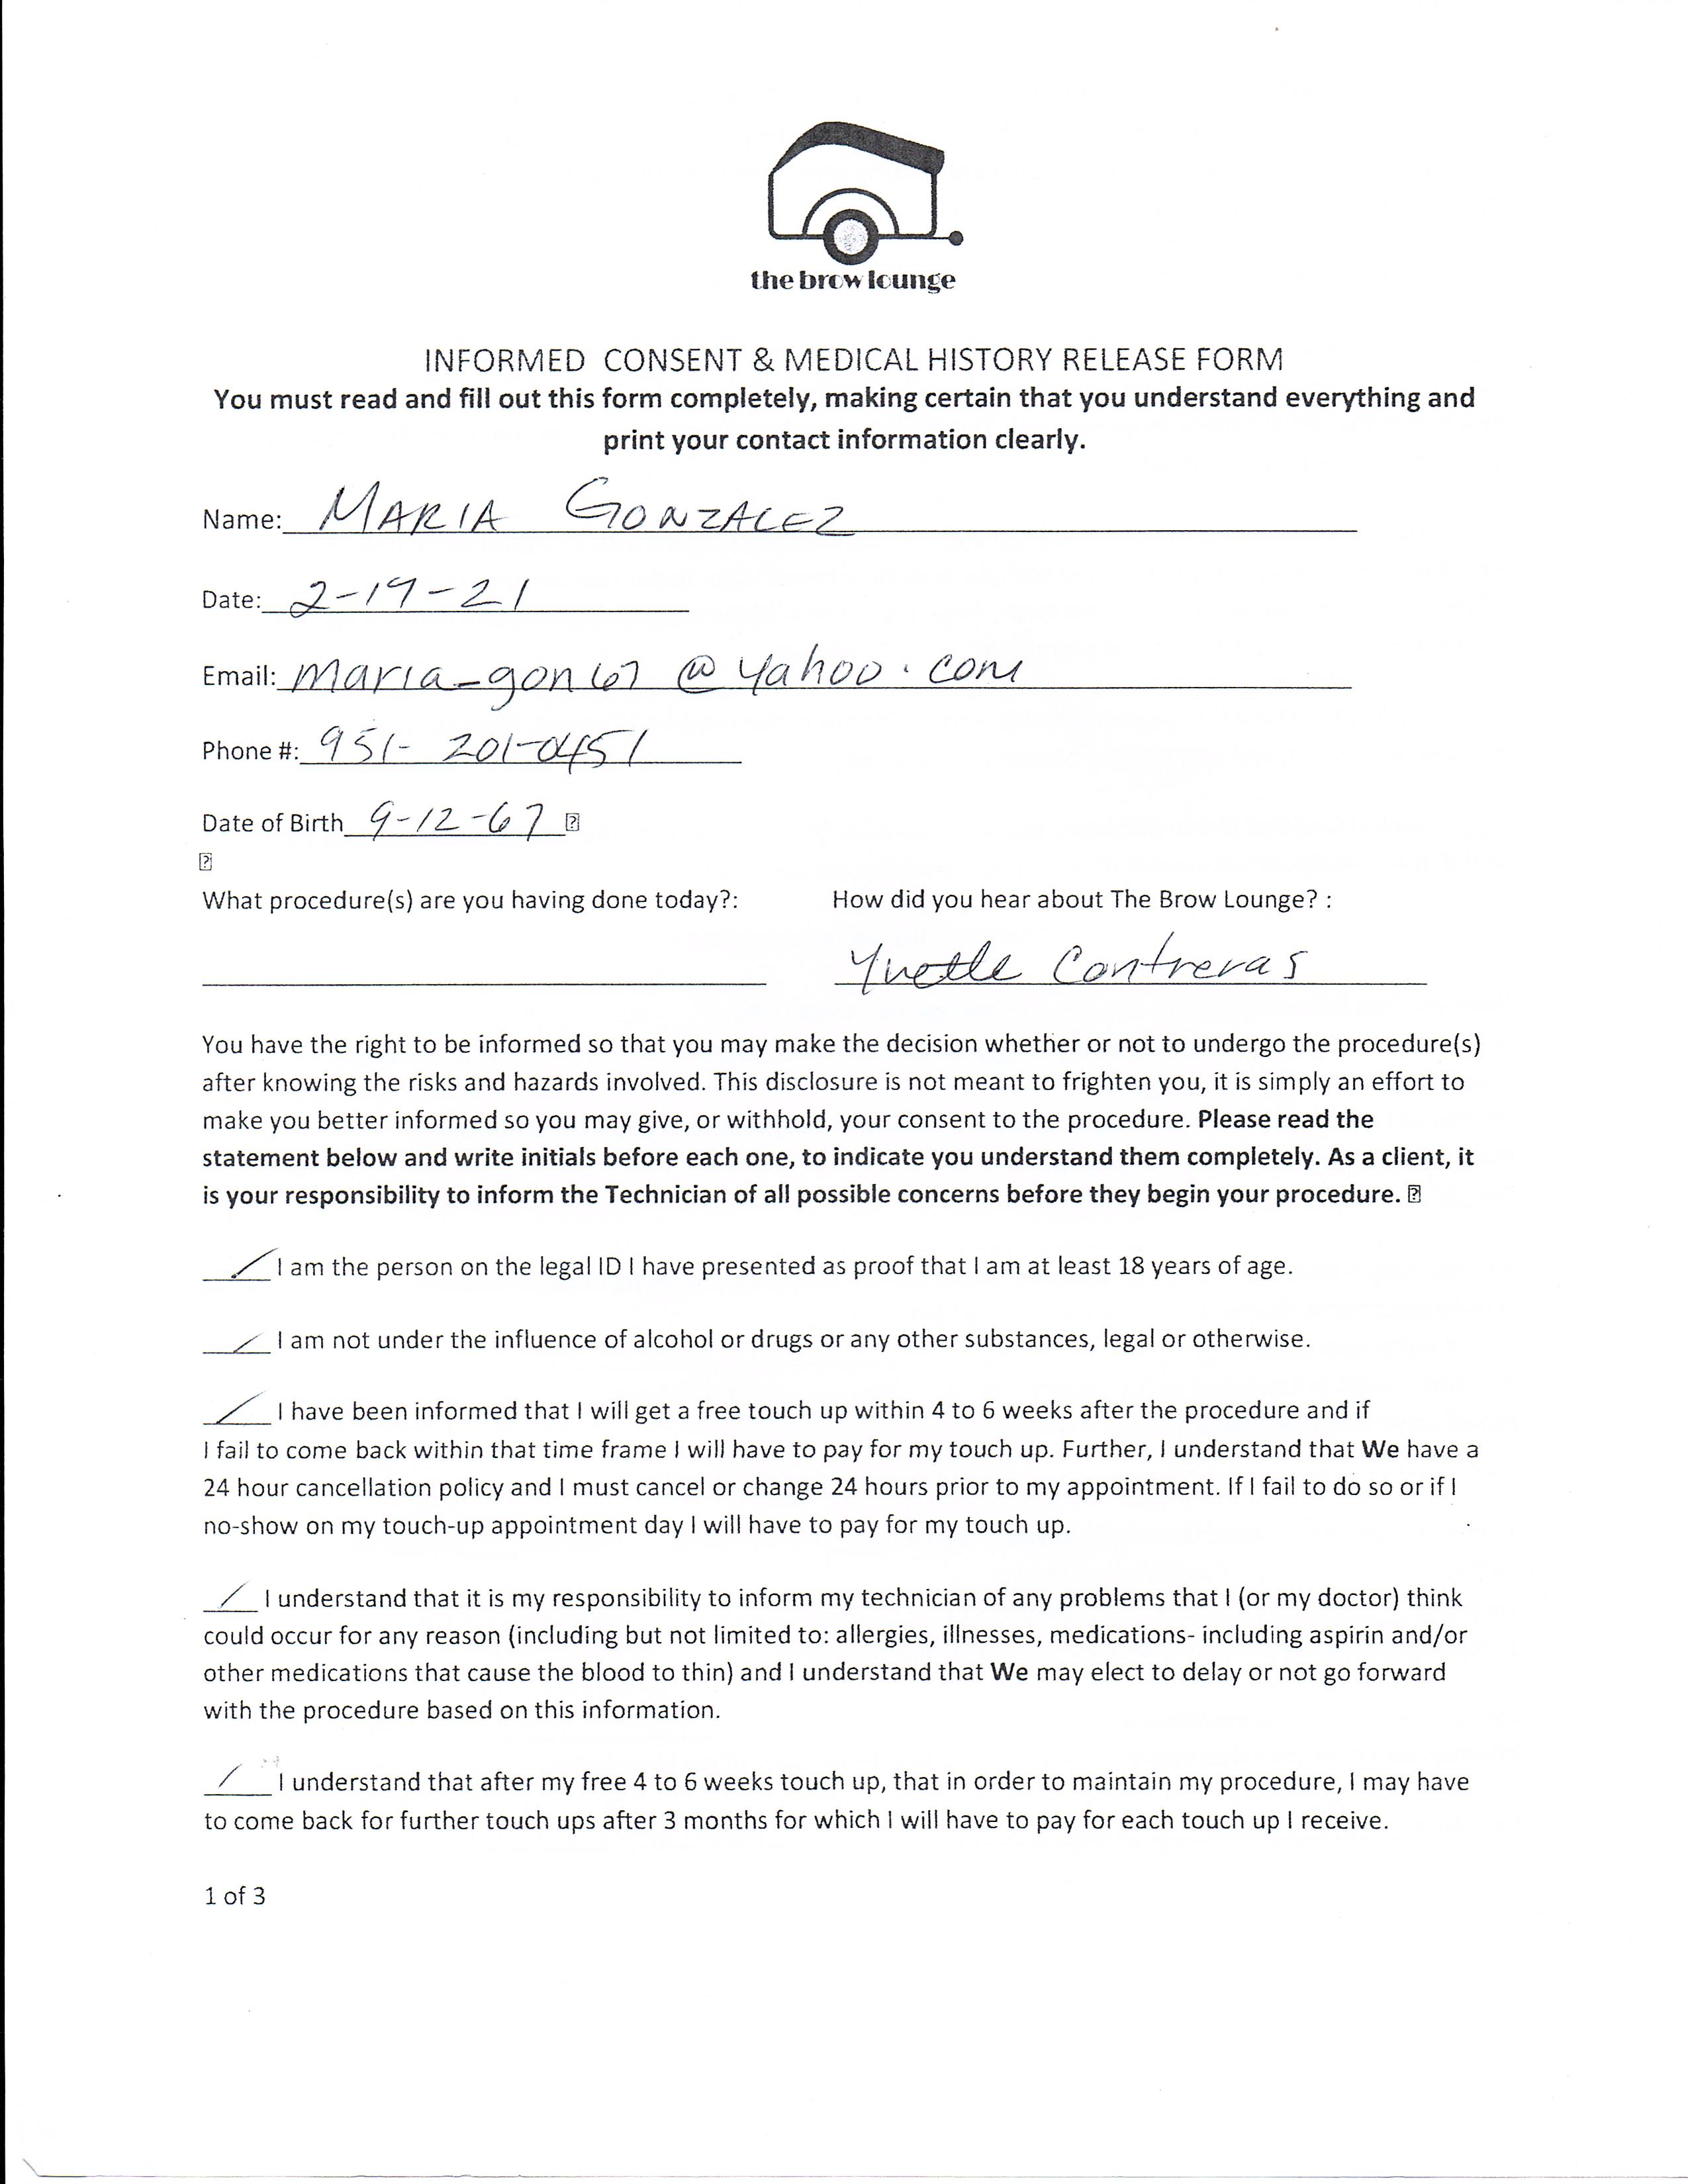 the brow lounge
INFORMED CONSENT & MEDICAL HISTORY RELEASE FORM
You must read and fill out this form completely, making certain that you understand everything and
print your contact information clearly.
Name: MARIA GONZALEZ
Date: 2-19-21
Email: maria_gon67@yahoo.com
Phone #: 951-201-0451
Date of Birth 9-12-67
What procedure(s) are you having done today?: How did you hear about The Brow Lounge? :
Yvette Contreras
You have the right to be informed so that you may make the decision whether or not to undergo the procedure(s)
after knowing the risks and hazards involved. This disclosure is not meant to frighten you, it is simply an effort to
make you better informed so you may give, or withhold, your consent to the procedure. Please read the
statement below and write initials before each one, to indicate you understand them completely. As a client, it
is your responsibility to inform the Technician of all possible concerns before they begin your procedure.
I am the person on the legal ID I have presented as proof that I am at least 18 years of age.
I am not under the influence of alcohol or drugs or any other substances, legal or otherwise.
I have been informed that I will get a free touch up within 4 to 6 weeks after the procedure and if
I fail to come back within that time frame I will have to pay for my touch up. Further, I understand that We have a
24 hour cancellation policy and I must cancel or change 24 hours prior to my appointment. If I fail to do so or if I
no-show on my touch-up appointment day I will have to pay for my touch up.
I understand that it is my responsibility to inform my technician of any problems that I (or my doctor) think
could occur for any reason (including but not limited to: allergies, illnesses, medications- including aspirin and/or
other medications that cause the blood to thin) and I understand that We may elect to delay or not go forward
with the procedure based on this information.
I understand that after my free 4 to 6 weeks touch up, that in order to maintain my procedure, I may have
to come back for further touch ups after 3 months for which I will have to pay for each touch up I receive.
1 of 3